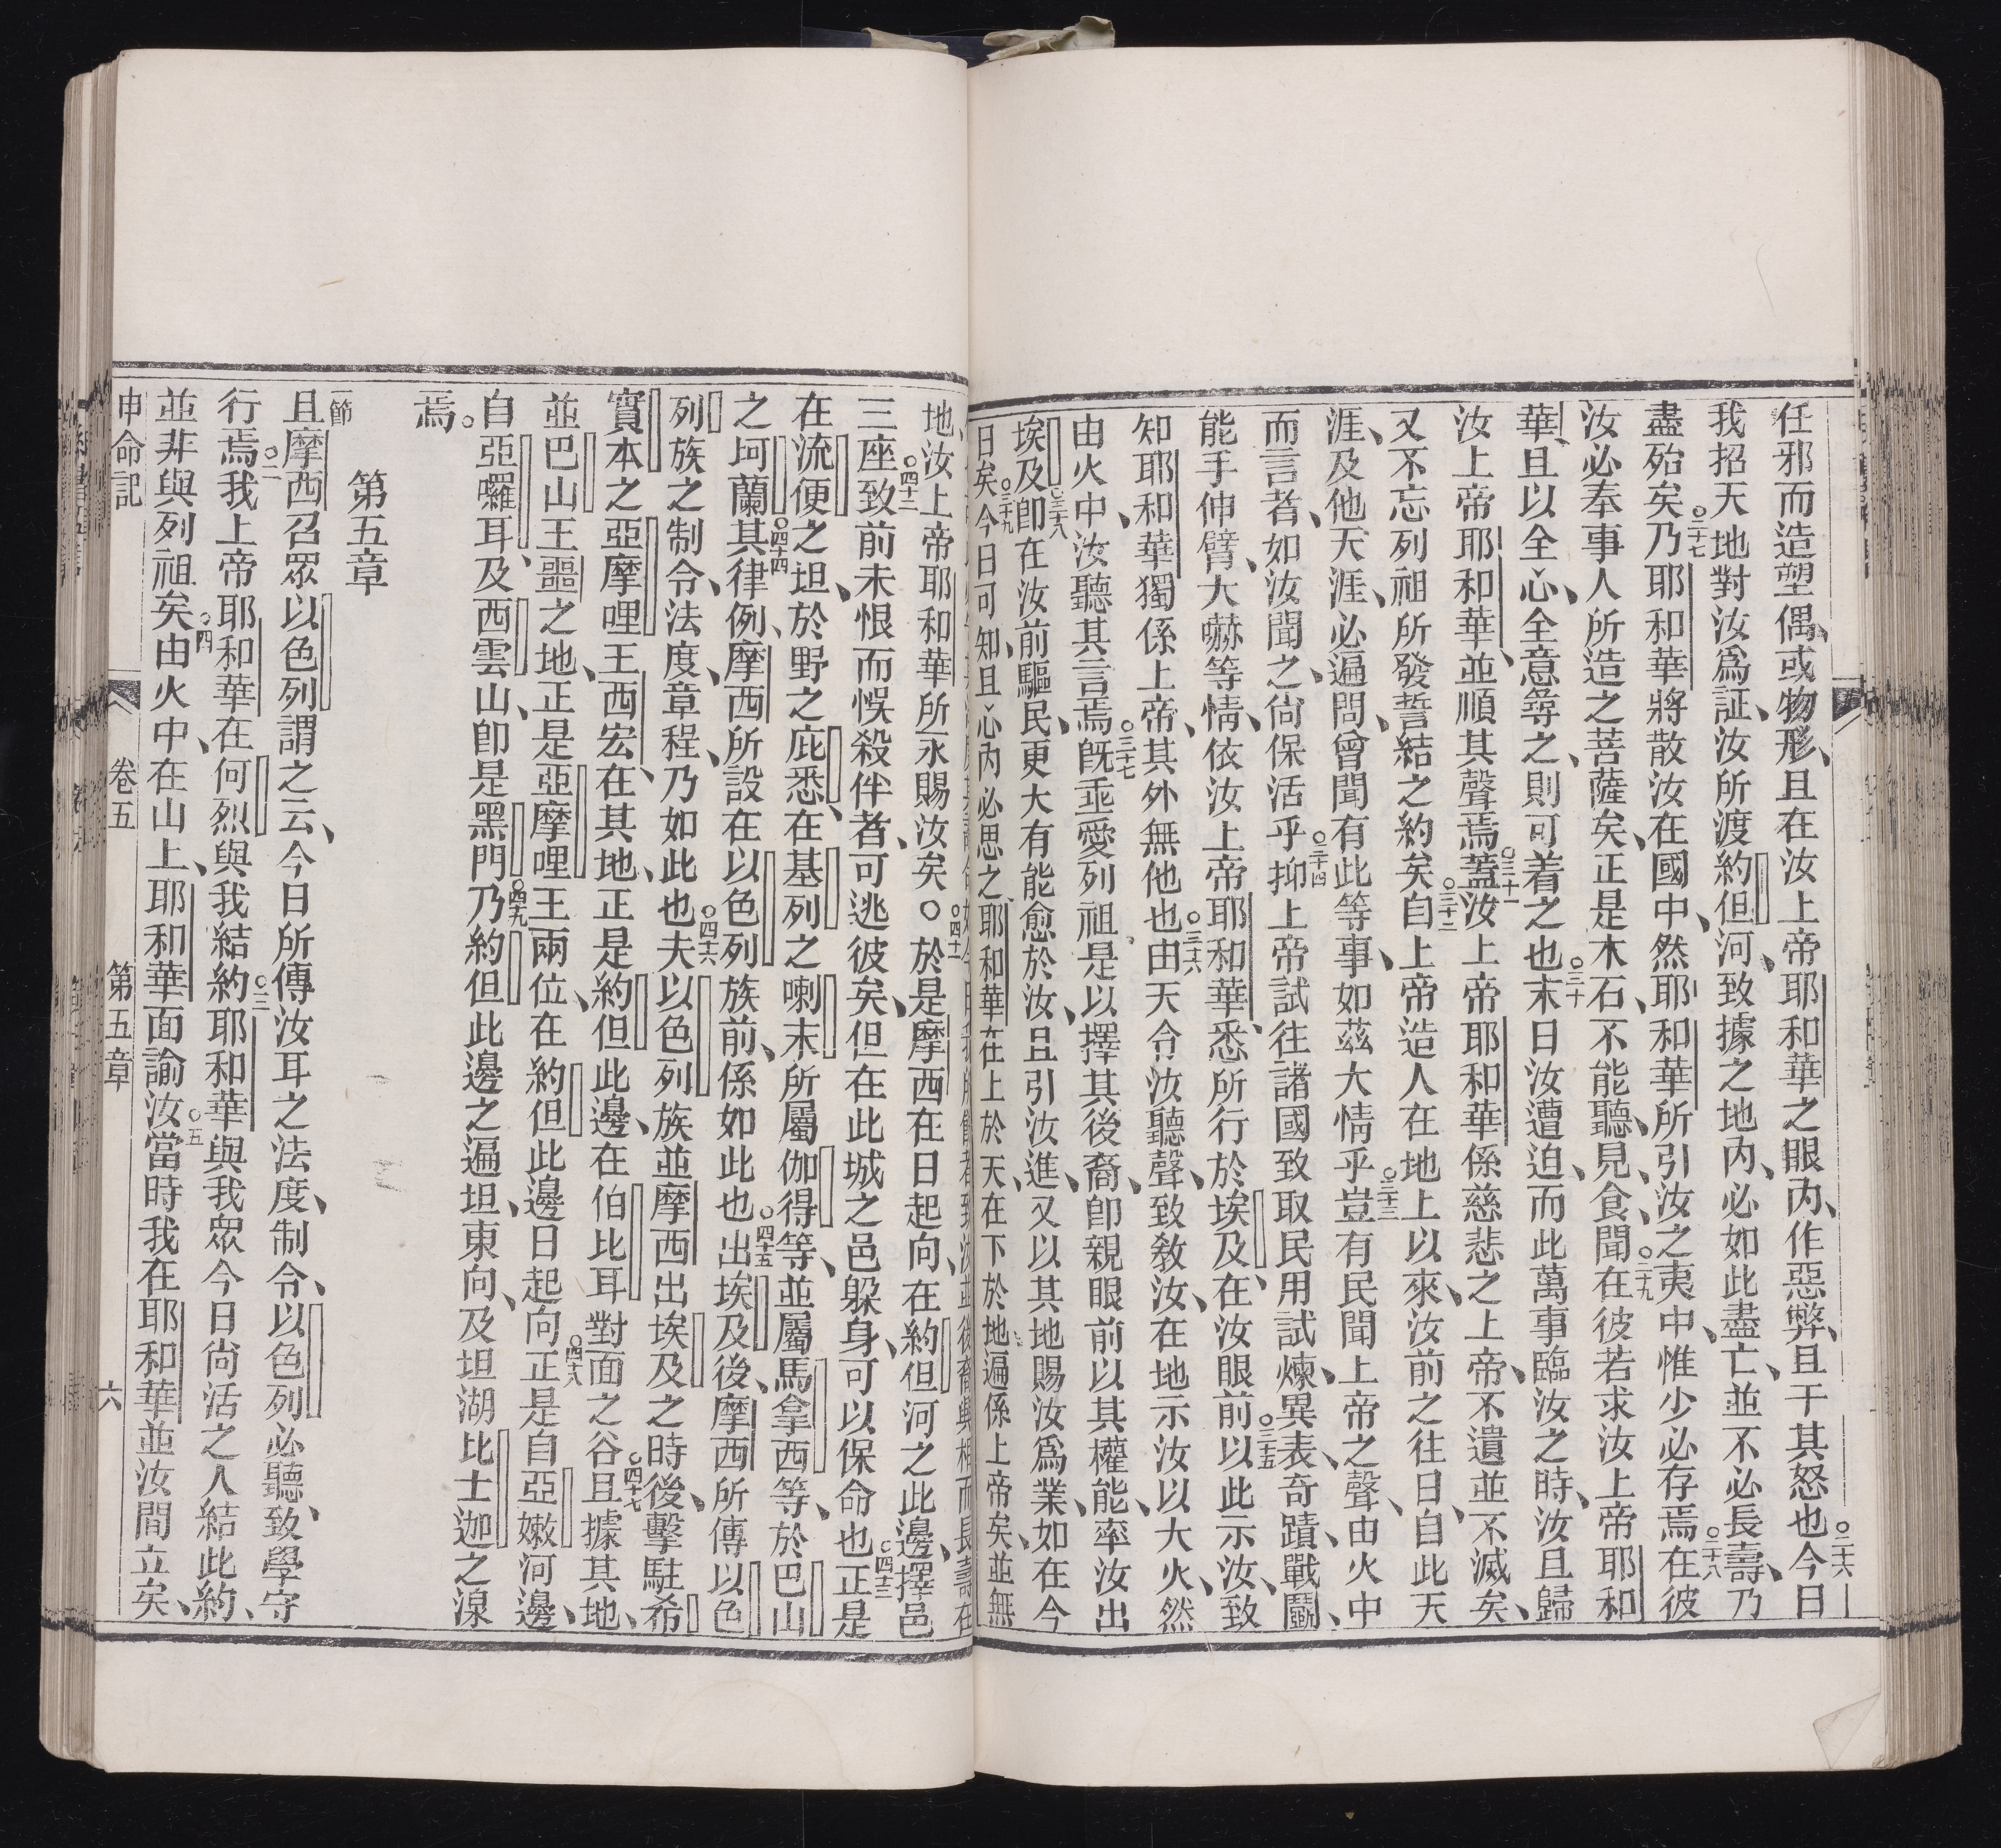 任邪而造塑偶、或物形、且在汝上帝耶和華之眼內、作惡弊、且干其怒也○二十六今日
我招天地對汝爲証、汝所渡約但河、致據之地內、必如此盡亡、並不必長壽、乃○二十八
盡殆矣○二十七乃耶和華將散汝在國中、然耶和華所引汝之夷中、惟少必存焉在彼
汝必奉事人所造之菩薩矣、正是木石、不能聽、見、食、聞○二十九在彼若求汝上帝耶和
華、且以全心、全意尋之、則可着之也○三十末日汝遭迫、而此萬事臨汝之時、汝且歸
汝上帝耶和華、並順其聲焉○三十一蓋汝上帝耶和華係慈悲之上帝、不遺並不滅矣、
又不忘列祖所發誓結之約矣○三十二自上帝造人在地上以來、汝前之往日、自此天
涯、及他天涯、必遍問、曾聞有此等事、如茲大情乎○三十三豈有民聞上帝之聲、由火中
而言者、如汝聞之、尙保活乎○三十四抑上帝試往諸國致取民用試煉、異表、奇蹟、戰鬬、
能手伸臂、大嚇等情、依汝上帝耶和華、悉所行於埃及、在汝眼前○三十五以此示汝、致
知耶和華獨係上帝、其外無他也○三十六由天令汝聽聲、致教汝、在地示汝以大火、然
由火中、汝聽其言焉○三十七旣乖愛列祖、是以擇其後裔、卽親眼前以其權能、率汝出
埃及○三十八卽在汝前驅民、更大有能愈於汝、且引汝進、又以其地賜汝爲業、如在今
日矣○三十九今日可知且心內必思之、耶和華在上於天、在下於地、遍係上帝矣、並無
地、汝上帝耶和華所永賜汝矣。○○四十一於是摩西在日起向、在約但河之此邊、擇邑
三座○四十二致前未恨而悞殺伴者、可逃彼矣、但在此城之邑躱身、可以保命也○四十三正是
在流便之坦、於野之庇悉、在基列之喇末、所屬伽得等、並屬馬拿西等、於巴山
之坷蘭○四十四其律例、摩西所設在以色列族前、係如此也○四十五出埃及後、摩西所傳以色
列族之制令、法度、章程、乃如此也○四十六夫以色列族並摩西出埃及之時後、擊駐希
實本之亞摩哩王西宏、在其地、正是約但此邊、在伯比耳對面之谷○四十七且據其地、
並巴山王噩之地、正是亞摩哩王兩位、在約但此邊日起向○四十八正是自亞嫩河邊、
自亞囉耳、及西雲山、卽是黑門○四十九乃約但此邊之遍坦、東向、及坦湖比士迦之湶
焉。
第五章
一節
且摩西召眾以色列謂之云、今日所傳汝耳之法度、制令、以色列必聽、致學守
行焉○二我上帝耶和華在何烈與我結約○三耶和華與我眾今日尙活之人結此約、
並非與列祖矣○四由火中、在山上、耶和華面諭汝○五當時我在耶和華並汝間立矣、
申命記
卷五
第五章
六